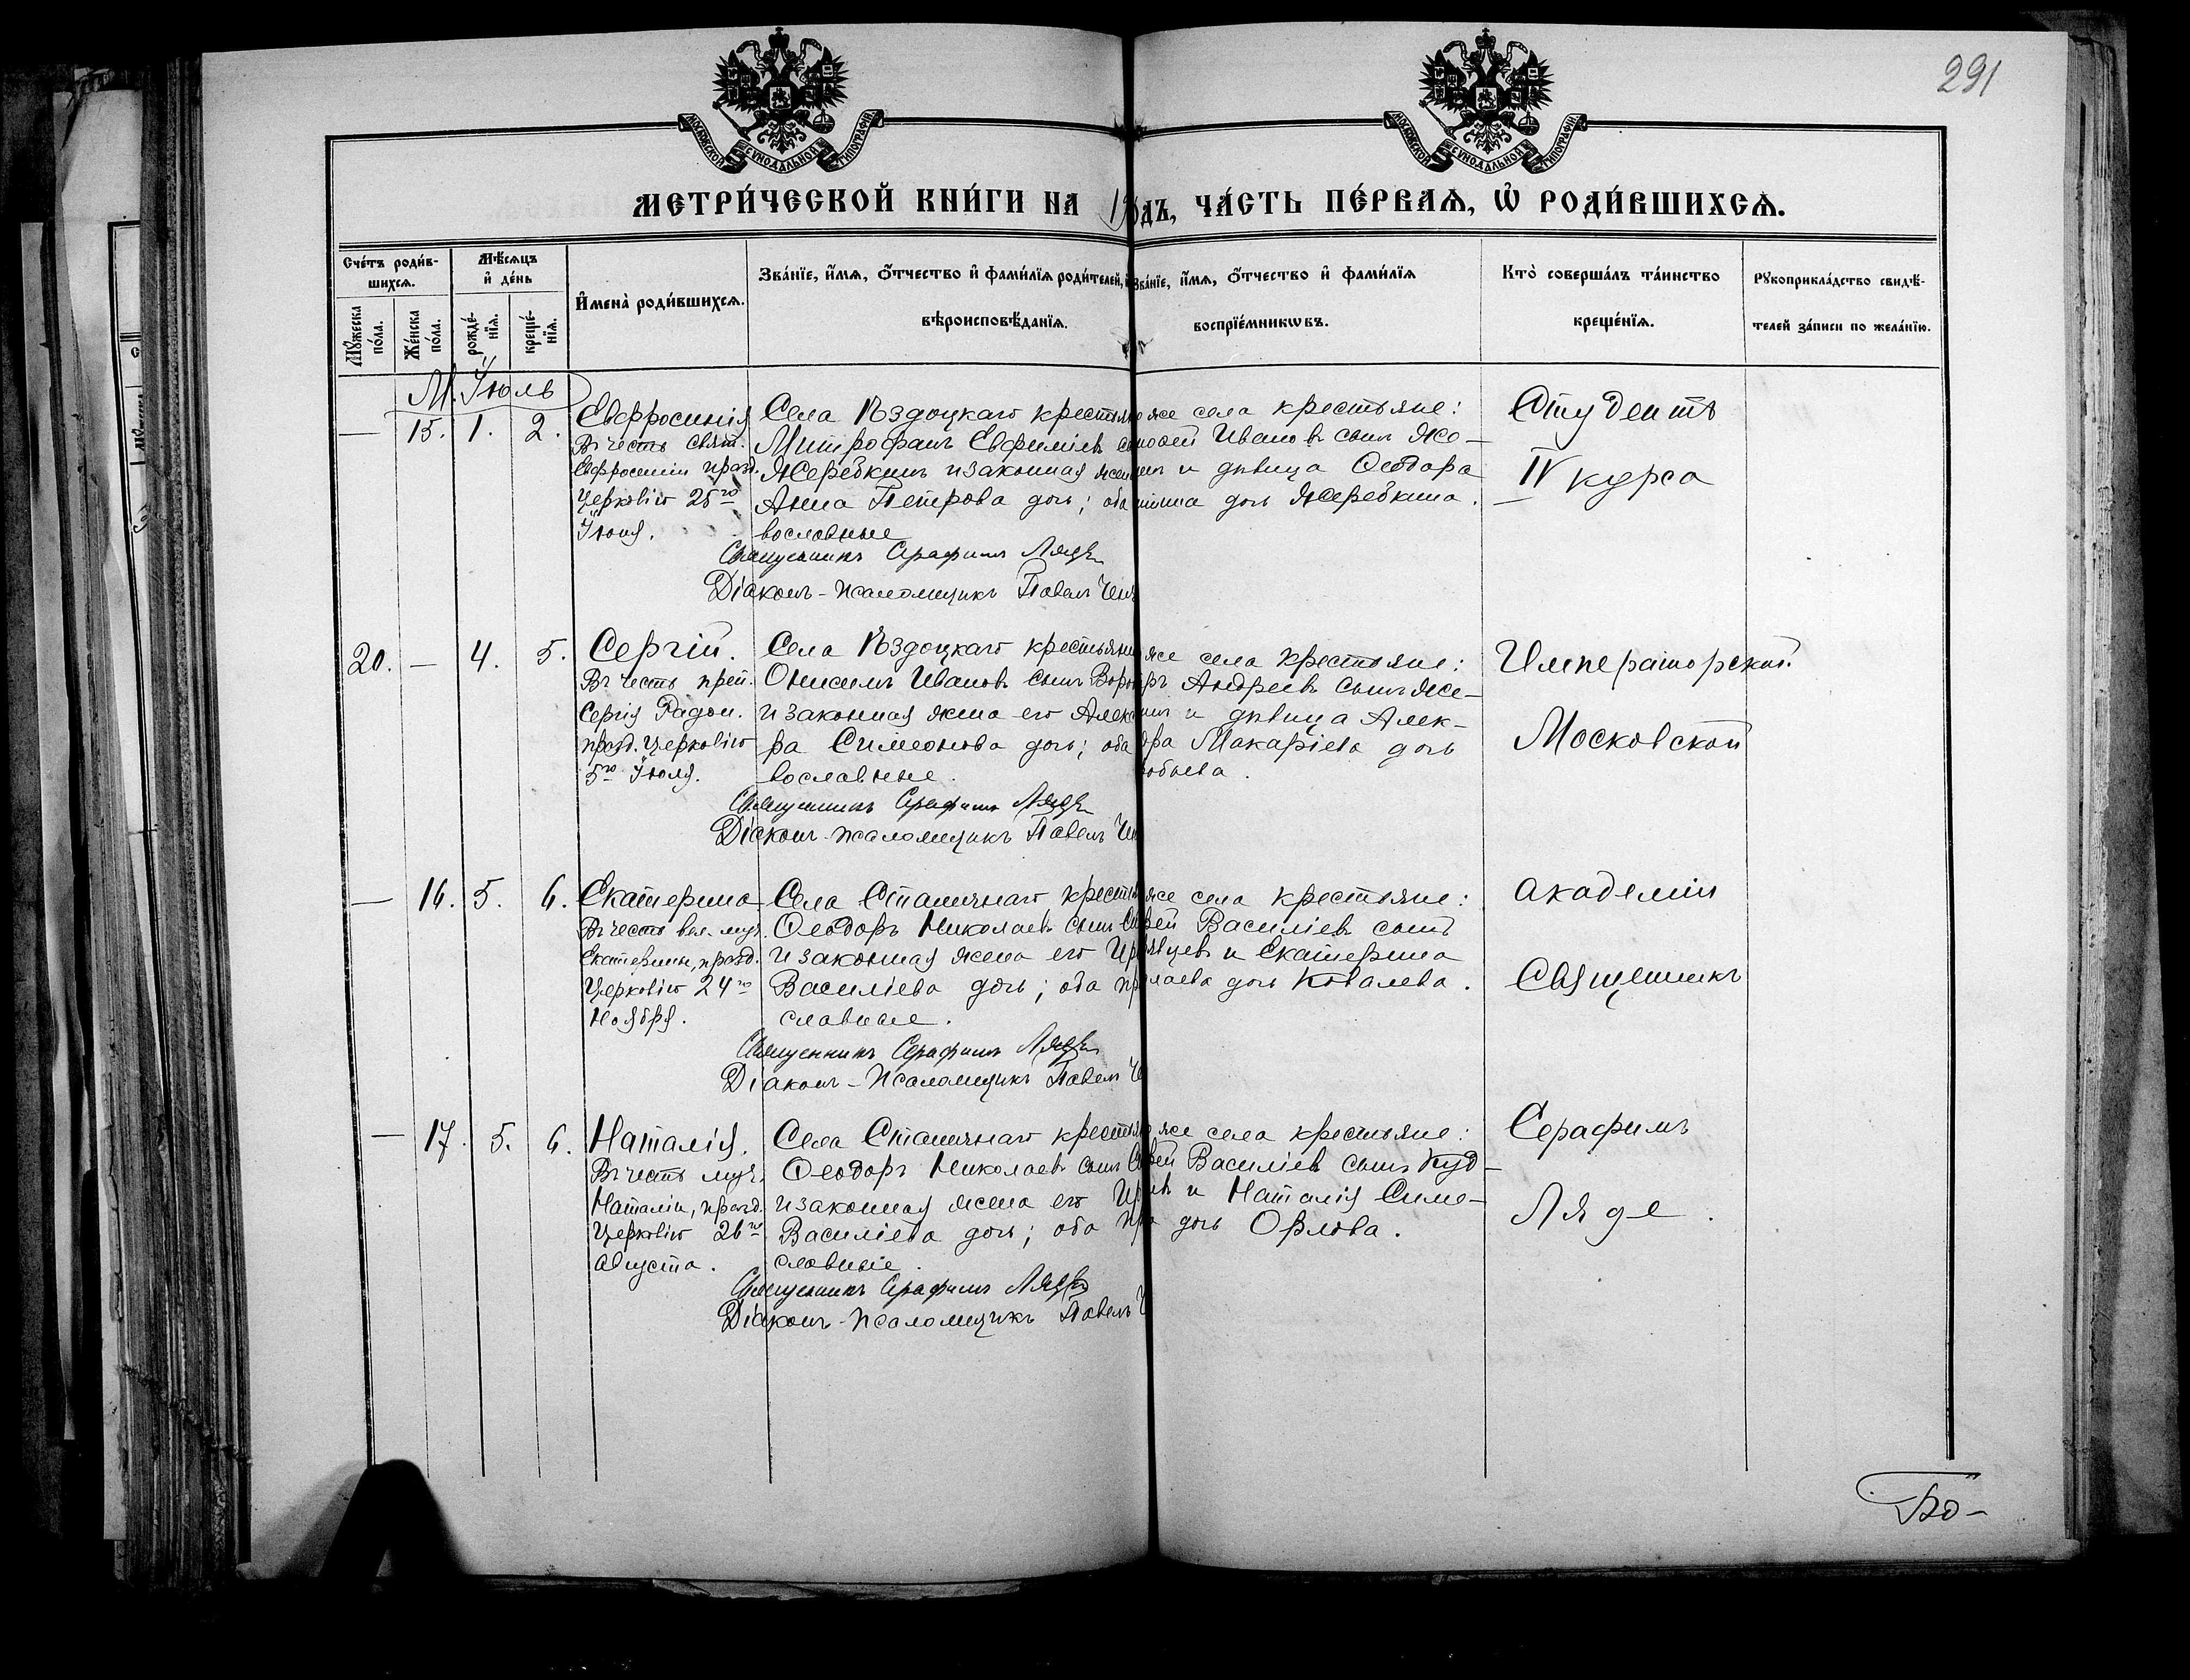 291
МОСКОВСКОЙ СѴНОДАЛЬНОЙ ТИПОГРАФІИ
МОСКОВСКОЙ СѴНОДАЛЬНОЙ ТИПОГРАФІИ
МЕТРИ́ЧЕСКОЙ КНИ́ГИ НА 19 ДЪ, ЧА́СТЬ ПЕ́РВАѦ, Ѡ РОДИ́ВШИХСѦ.
Сче́тъ роди́в-
шихсѧ.
Мꙋ́жеска по́ла.
Же́нска по́ла.
Мѣ́сѧцъ
и҆ де́нь
рожде́-нїѧ.
креще́-нїѧ.
И҆мена̀ роди́вшихсѧ.
Зва́нїе, и҆́мѧ, ѻ҆́тчество и҆ фами́лїѧ роди́телей, и҆
вѣроисповѣ́данїѧ.
Зва́нїе, и҆́мѧ, ѻ҆́тчество и҆ фами́лїѧ
воспрїе́мникѡвъ.
Кто̀ соверша́лъ та́инство
креще́нїѧ.
Рꙋкоприкла́дство свидѣ́-
телей за́писи по жела́нїю.
М. Іюль
— 15. 1. 2.
Евфросинія
Въ честь свят.
Евфросиніи празд.
Церковію 25го
Іюня.
Села Ѣздоцкаго крестьян
Митрофанъ Евфиміевъ с
Жеребкинъ и законная жен
Анна Петрова дочь; оба
вославные
Священникъ Серафимъ Ляде
Діаконъ-псаломщикъ Павелъ Че
же села крестьяне:
ѳей Ивановъ сынъ Же-
инъ и дѣвица Ѳеодора
дочь Жеребкина.
Студентъ
IV курса
20. — 4. 5.
Сергій.
Въ честь преп.
Сергія Радон.
празд. Церковію
5го Іюля.
Села Ѣздоцкаго крестьяни
Онисимъ Ивановъ сынъ Воро
и законная жена его Алекс
ра Симеонова дочь; оба
вославные.
Священникъ Серафимъ Ляде
Діаконъ-псаломщикъ Павелъ Че
же села крестьяне:
ръ Андреевъ сынъ Же-
инъ и дѣвица Алек-
дра Макаріева дочь
обьева.
Императорской
Московской
— 16. 5. 6.
Екатерина
Въ честь вел. муч.
Екатерины, празд.
Церковію 24го
Ноября.
Села Станичнаго крестья
Ѳеодоръ Николаевъ сынъ
и законная жена его Ир
Василіева дочь; оба пр
славные.
Священникъ Серафимъ Ляде
Діаконъ-псаломщикъ Павелъ Ч
же села крестьяне:
ѳей Василіевъ сынъ
вцевъ и Екатерина
лаева дочь Ковалева.
Академіи
Священникъ
— 17. 5. 6.
Наталія.
Въ честь муч.
Наталіи, празд.
Церковію 26го
Августа.
Села Станичнаго крестья
Ѳеодоръ Николаевъ сынъ
и законная жена его Ир
Василіева дочь; оба пра
славные.
Священникъ Серафимъ Ляде
Діаконъ-псаломщикъ Павелъ Ч
же села крестьяне:
ѳей Василіевъ сынъ Куд-
въ и Наталія Симе-
дочь Орлова.
Серафимъ
Ляде.
Бо-